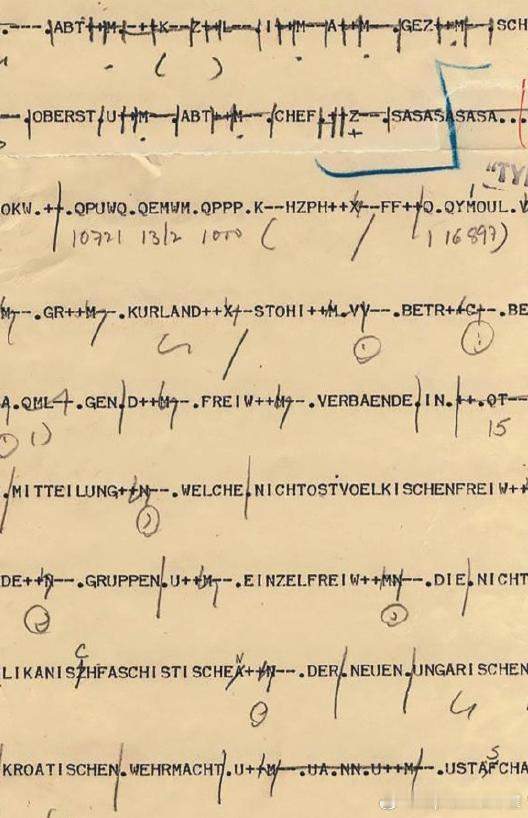 .ABT++M.-++K--Z++L--.I++M--A++M--.GEZ++M--.SCH
( )
.OBERST.U++M--.ABT++M--.CHEF.+++Z--.SASASASASA...
"TY
OKW.++.QPUWQ.QEMWM.QPPP.K--HZPH++X--FF++Q.QYMOUL.V
10721 13/2 1000 ( / 1 16897)
M--.GR++M--.KURLAND++X--STOHI++M.VV--.BETR++C--.BE
A.QML--.GEN.D++M--.FREIW++M--.VERBAENDE.IN.++.QT--
1) 15
.MITTEILUNG++N--.WELCHE.NICHTOSTVOELKISCHENFREIW++
DE++N--.GRUPPEN.U++M--.EINZELFREIW++MN--.DIE.NICHT
C N
LIKANISZHFASCHISTISCHEA++N--.DER.NEUEN.UNGARISCHEN
S
KROATISCHEN.WEHRMACHT.U++M--.UA.NN.U++M--.USTAFCHA